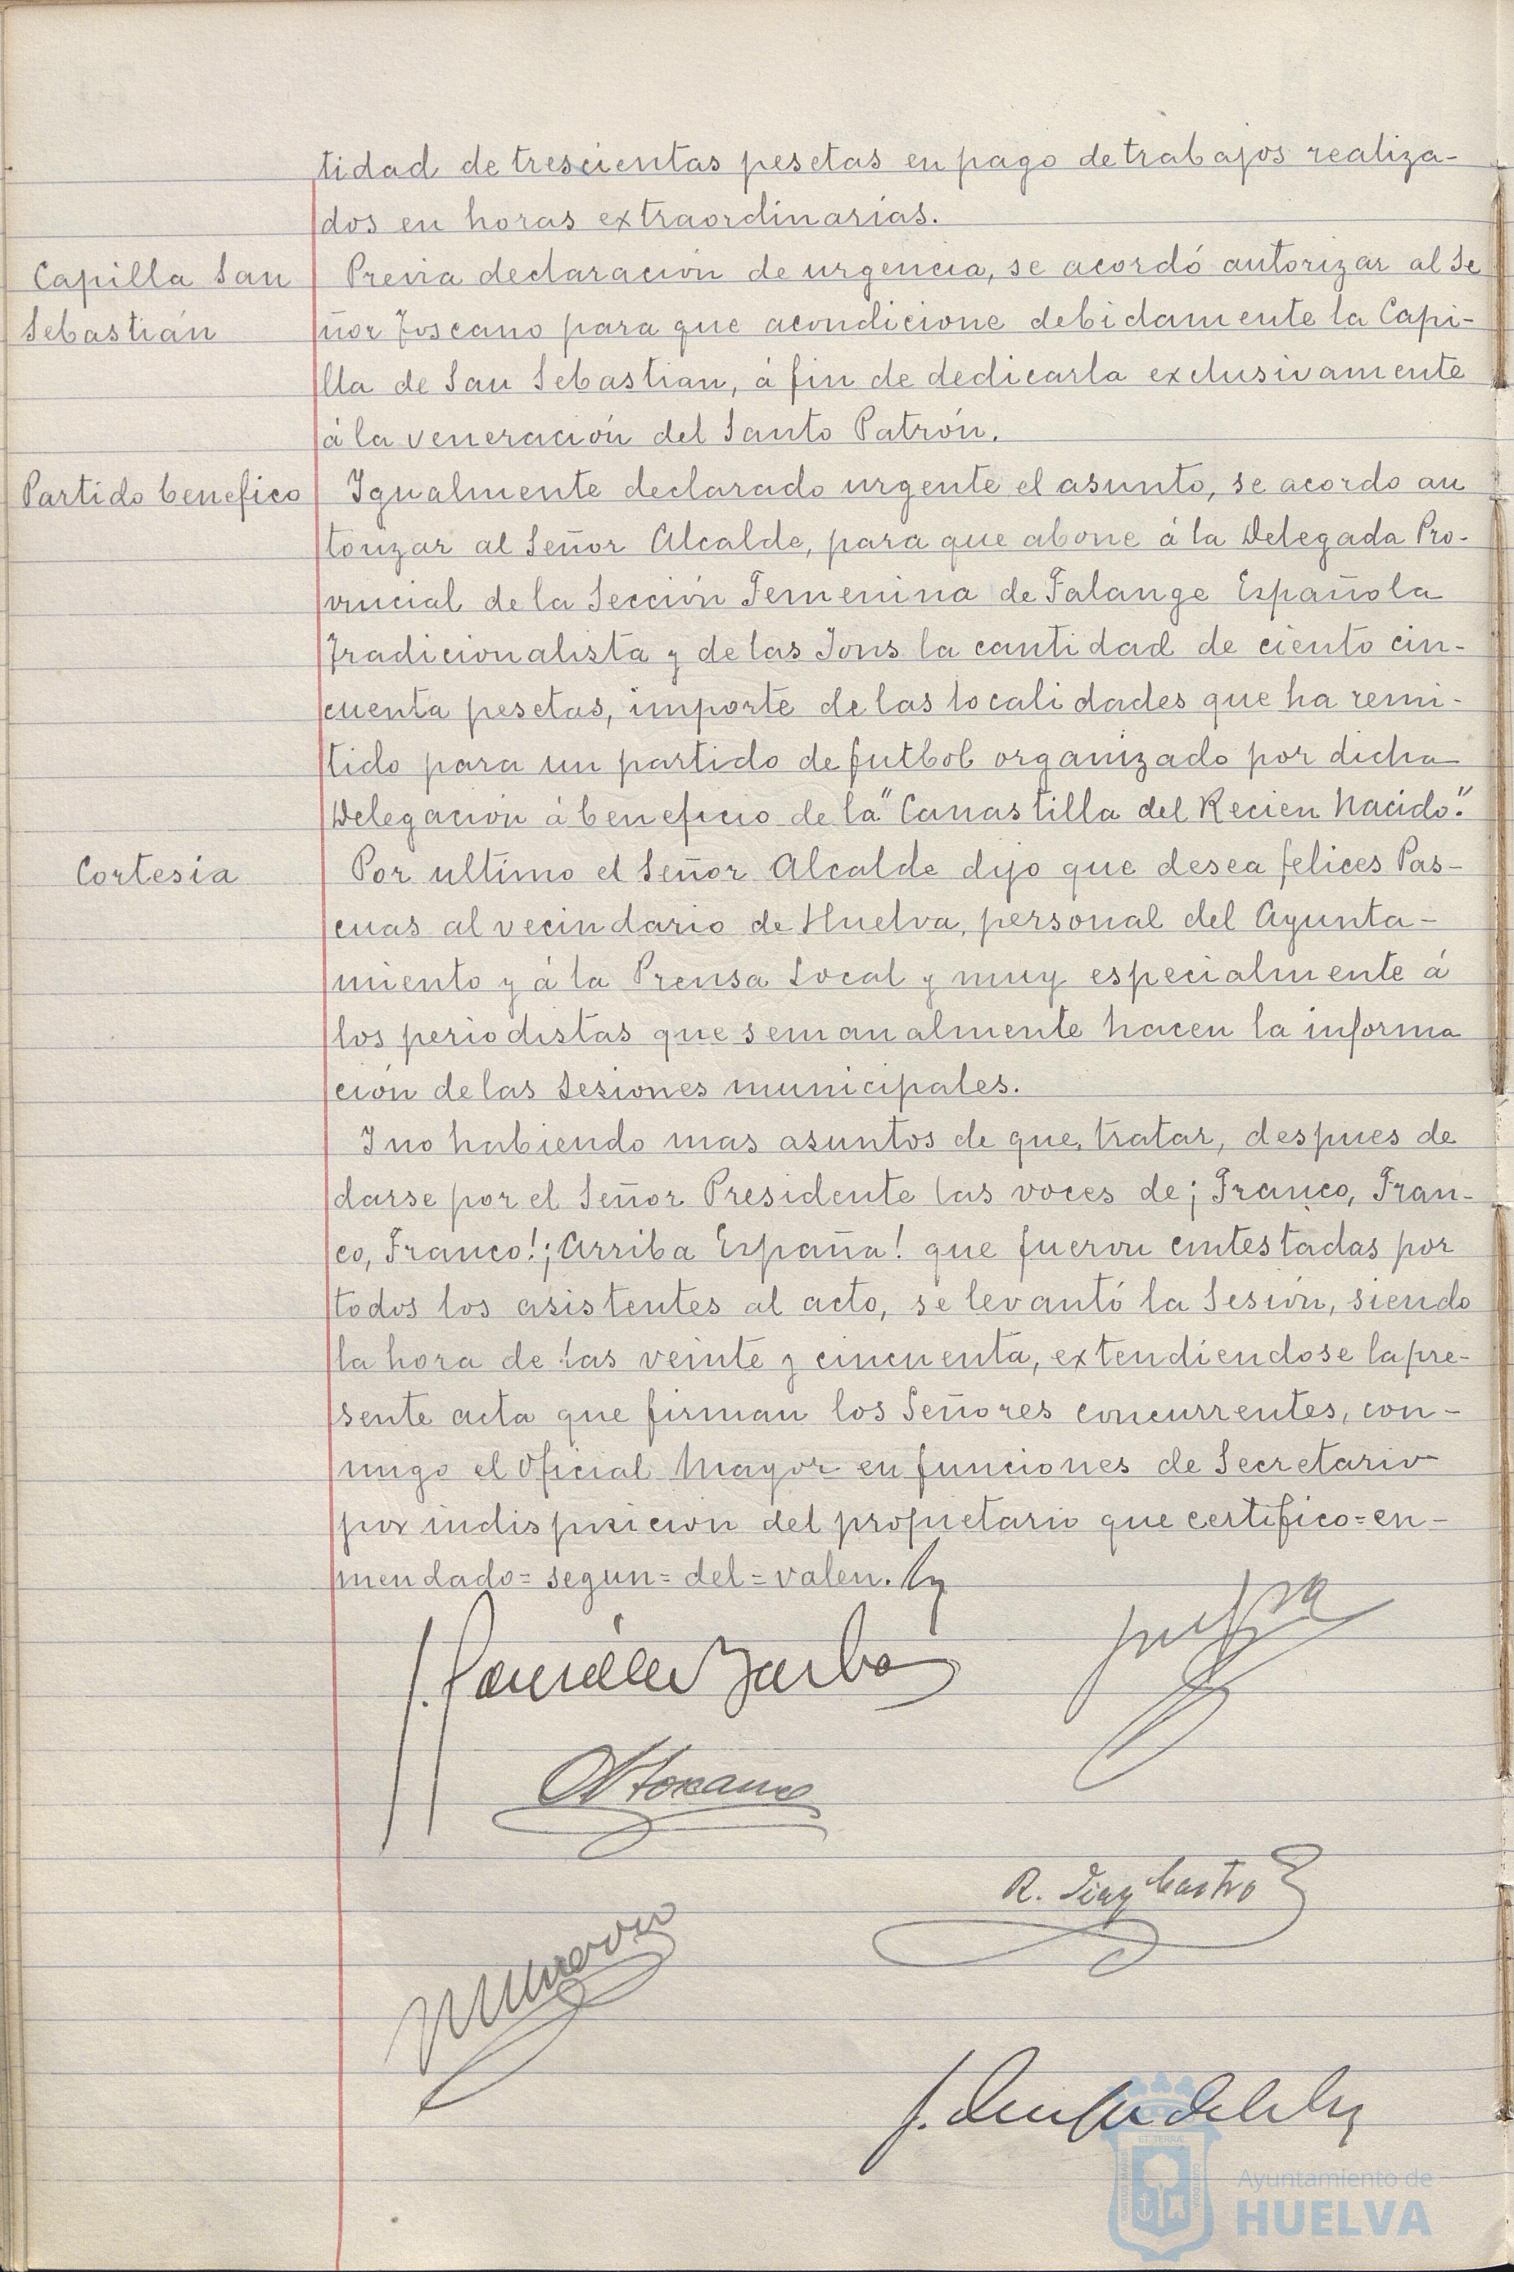 tidad de trescientas pesetas en pago de trabajos realiza-
dos en horas extraordinarias.
Capilla San
Sebastián
Previa declaración de urgencia, se acordó autorizar al Se
ñor Toscano para que acondicione debidamente la Capi-
lla de San Sebastian, á fin de dedicarla exclusivamente
á la veneración del Santo Patrón.
Partido benefico
Igualmente declarado urgente el asunto, se acordo au
torizar al Señor Alcalde, para que abone á la Delegada Pro-
vincial de la Sección Femenina de Falange Española
Tradicionalista y de las Jons la cantidad de ciento cin-
cuenta pesetas, importe de las localidades que ha remi-
tido para un partido de futbol organizado por dicha
Delegación á beneficio de la "Canastilla del Recien Nacido".
Cortesia
Por ultimo el Señor Alcalde dijo que desea felices Pas-
cuas al vecindario de Huelva, personal del Ayunta-
miento y á la Prensa Local y muy especialmente á
los periodistas que semanalmente hacen la informa
ción de las Sesiones municipales.
I no habiendo mas asuntos de que tratar, despues de
darse por el Señor Presidente las voces de ¡Franco, Fran-
co, Franco! ¡Arriba España! que fueron contestadas por
todos los asistentes al acto, se levantó la Sesión, siendo
la hora de las veinte y cincuenta, extendiendose la pre-
sente acta que firman los Señores concurrentes, con-
migo el Oficial Mayor en funciones de Secretario
por indisposicion del propietario que certifico=en-
mendado=segun=del=valen.
R. Diaz Castro
Ayuntamiento de
HUELVA